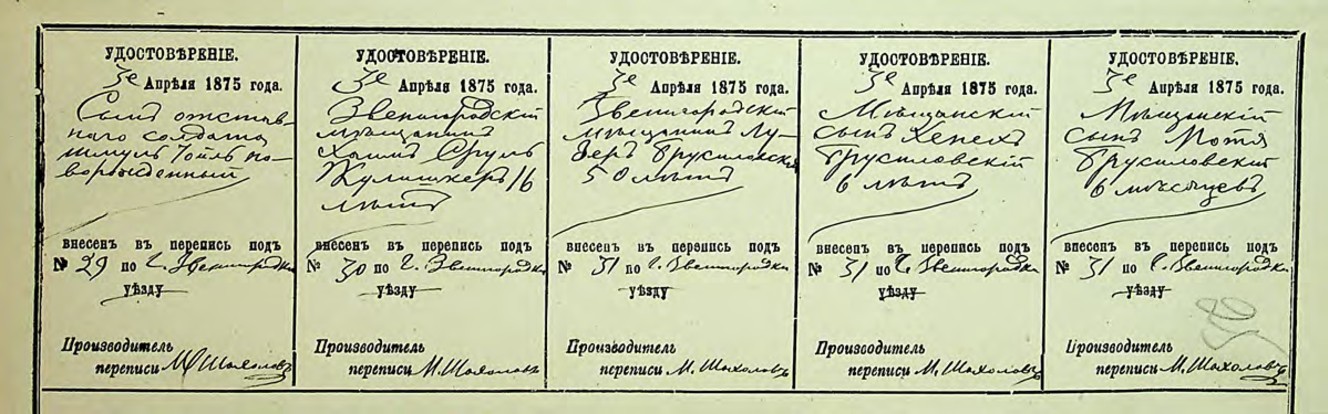 УДОСТОВѢРЕНІЕ.
3е Апрѣля 1875 года.
Сынъ отстав-
наго солдата
Шмуль Іойль но-
ворожденный
внесенъ въ перепись подъ
№ 29 по г. Звенигородкѣ
уѣзду
Производитель
переписи М. Шахоловъ
УДОСТОВѢРЕНІЕ.
3е Апрѣля 1875 года.
Звенигородскій
мѣщанинъ
Хаимъ Сруль
Кулишкеръ 16
лѣтъ
внесенъ въ перепись подъ
№ 30 по г. Звенигородкѣ
уѣзду
Производитель
переписи М. Шахоловъ
УДОСТОВѢРЕНІЕ.
3е Апрѣля 1875 года.
Звенигородскій
мѣщанинъ Лу-
зеръ Трусиловскій
50 лѣтъ
внесенъ въ перепись подъ
№ 31 по г. Звенигородкѣ
уѣзду
Производитель
переписи М. Шахоловъ
УДОСТОВѢРЕНІЕ.
3е Апрѣля 1875 года.
Мѣщанскій
сынъ Хенехъ
Трусиловскій
6 лѣтъ
внесенъ въ перепись подъ
№ 31 по г. Звенигородкѣ
уѣзду
Производитель
переписи М. Шахоловъ
УДОСТОВѢРЕНІЕ.
3е Апрѣля 1875 года.
Мѣщанскій
сынъ Мотя
Трусиловскій
6 мѣсяцевъ
внесенъ въ перепись подъ
№ 31 по г. Звенигородкѣ
уѣзду
Производитель
переписи М. Шахоловъ